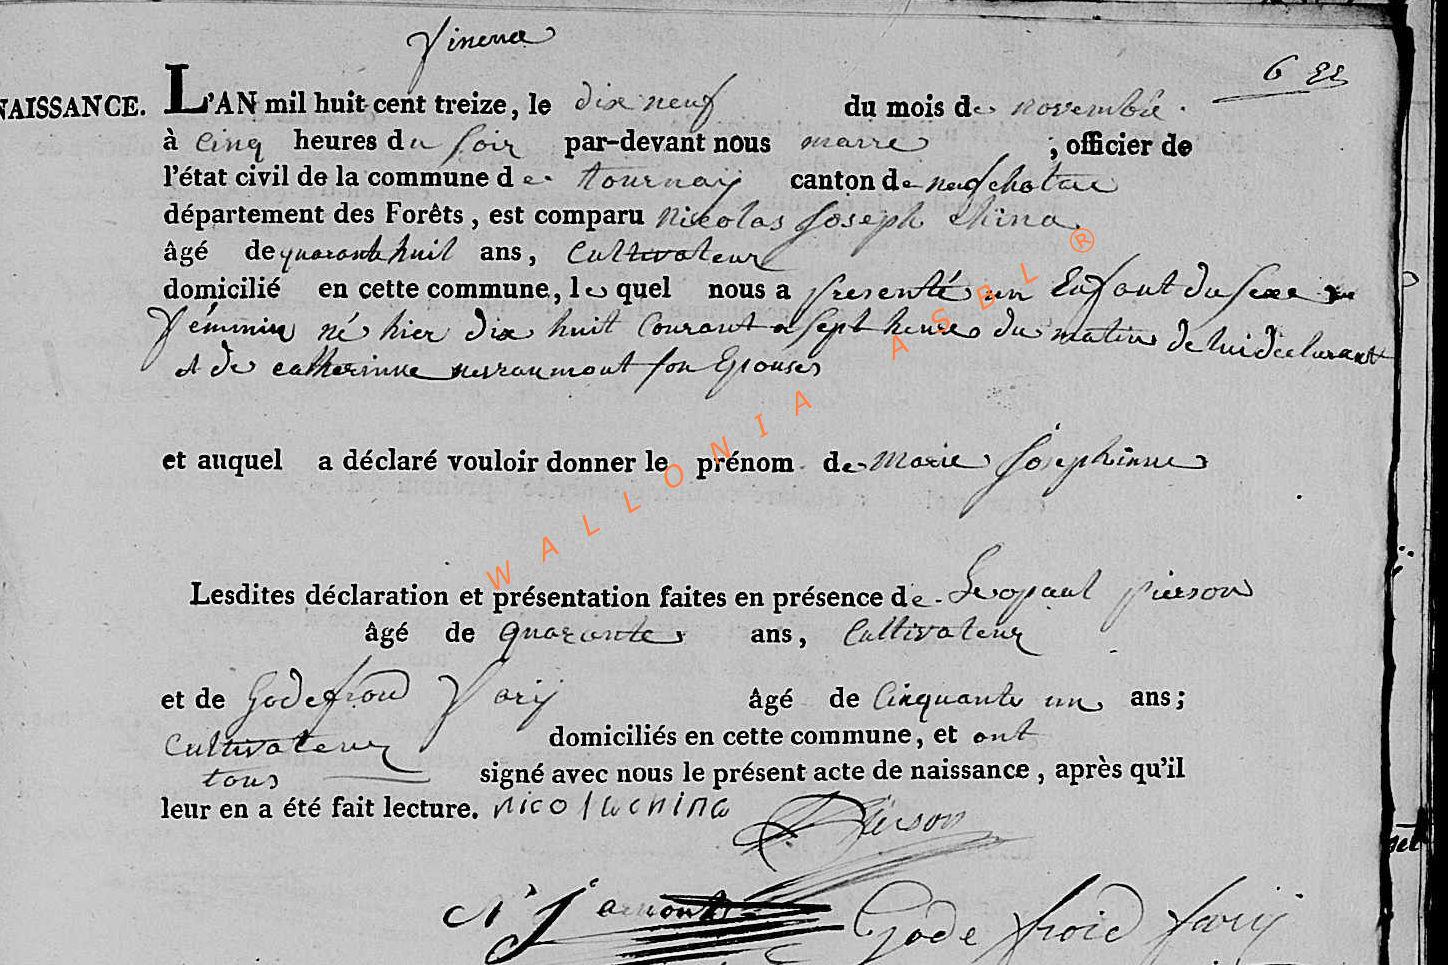 6
NAISSANCE. L'AN mil huit cent treize, le dix neuf du mois de novembre.
à cinq heures du soir par-devant nous marre ; officier de
l'état civil de la commune de tournay canton de neufchatau
département des Forêts, est comparu Nicolas Joseph china
âgé de quarante huit ans, Cultivateur
domicilié en cette commune, le quel nous a presenté un Enfant du sexe
féminin né hier dix huit Courant a sept heures du matin de lui déclarant
et de catherinne son Epouse
et auquel a déclaré vouloir donner le prénom de marie Josephinne
WALLONIA ASBL ®
Lesdites déclaration et présentation faites en présence de Leopaul pierson
âgé de quarante ans, Cultivateur
et de Godefroid âgé de Cinquante un ans;
Cultivateur domiciliés en cette commune, et ont
tous signé avec nous le présent acte de naissance, après qu'il
leur en a été fait lecture. nicola china Pierson
Godefroid